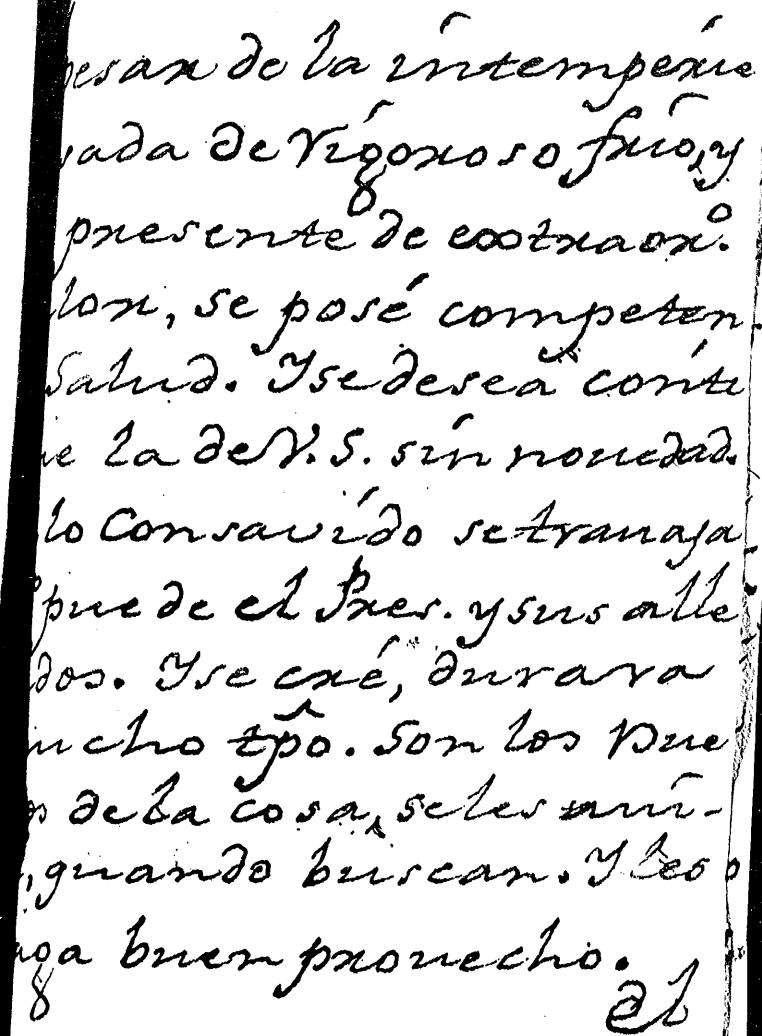 pesar de la intemperie
sada de Vigoroso frio, y
presente de extraorº.
lor, se posé competen
Salud. Y se desea conti
ue la de V. S. sin nouedad.
lo Consauido se trauaja.
puede el Pres. y sus alle
dos. Y se cré, durara
ucho tpō. Son los Due
os de la cosa, se les
, quando buscan. Y les
aga buen prouecho.
al